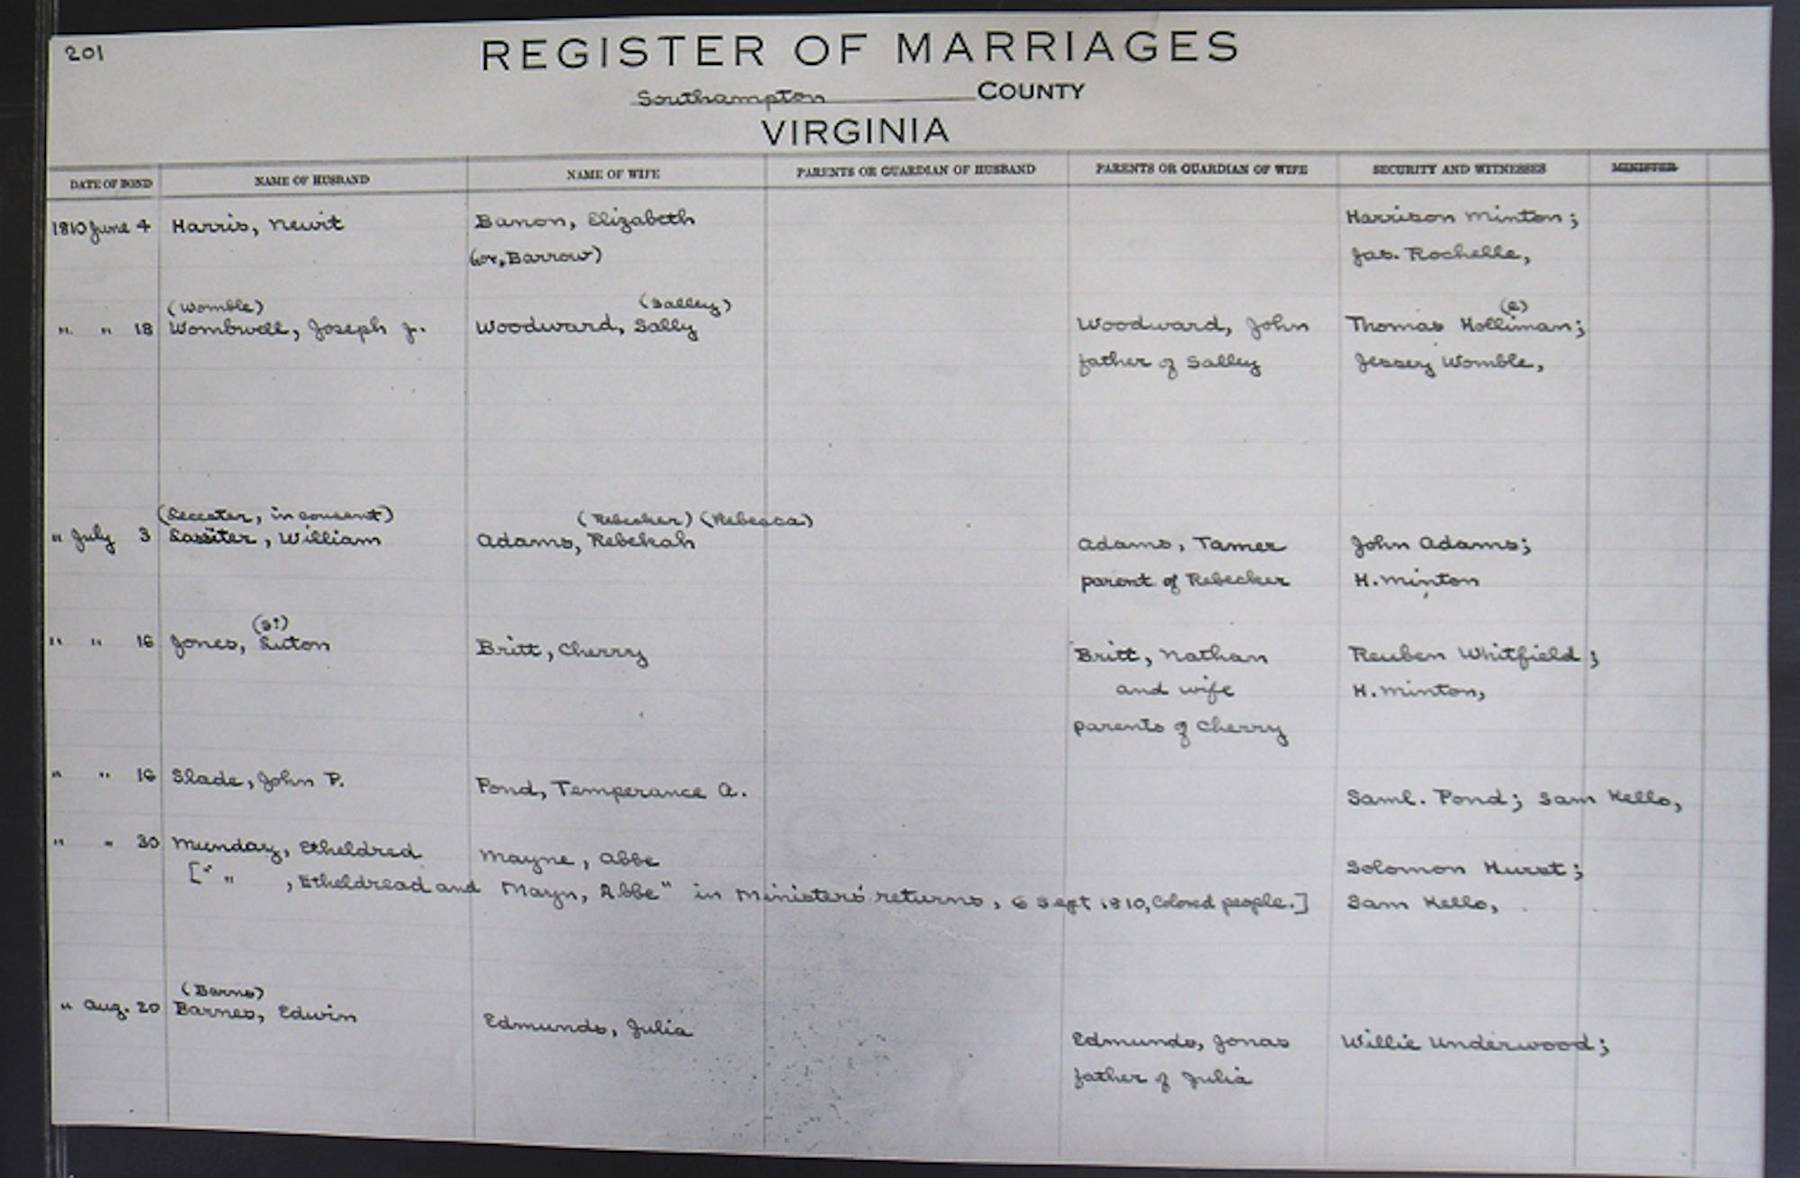 201
REGISTER OF MARRIAGES
Southampton COUNTY
VIRGINIA
DATE OF BOND NAME OF HUSBAND NAME OF WIFE PARENTS OR GUARDIAN OF HUSBAND PARENTS OR GUARDIAN OF WIFE SECURITY AND WITNESSES MINISTER
1810 June 4 Harris, Newit Banon, Elizabeth Harrison Minton;
(or, Barrow) Jas. Rochelle,
(Womble) (Salley) (e)
" " 18 Wombwell, Joseph Jr. Woodward, Sally Woodward, John Thomas Holliman;
father of Salley Jessey Womble,
(Leceter, in consent) (Rebecker) (Rebecca)
" July 3 Lassiter, William Adams, Rebekah Adams, Tamer John Adams;
parent of Rebecker H. Minton
(S?)
" " 16 Jones, Luton Britt, Cherry Britt, Nathan Reuben Whitfield;
and wife H. Minton,
parents of Cherry
" " 16 Slade, John P. Pond, Temperance A. Saml. Pond; Sam Kello,
" " 30 Munday, Etheldred Mayne, Abbe Solomon Hurst;
[" " , Etheldread and Mayn, Abbe" in Ministers' returns, 6 Sept 1810, Colored people.] Sam Kello,
(Barns)
" Aug. 20 Barnes, Edwin Edmunds, Julia Edmunds, Jonas Willie Underwood;
father of Julia